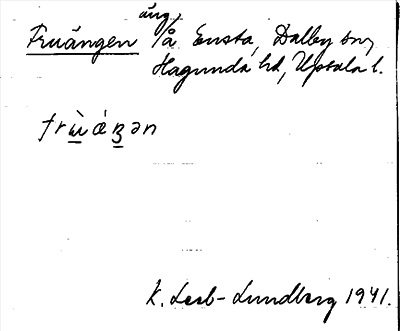 äng,
Fruängen /å Ensta, Dalby sn,
Hagunda hd, Upsala l.
frɯ̀áŋən
K. Leeb-Lundberg 1941.